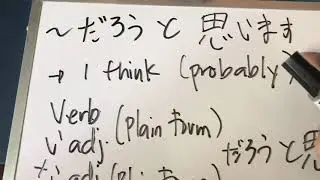 ~だろうと思います
→ I think (probably)
Verb
い adj. (plain form)
だろうと思
な adj (pl